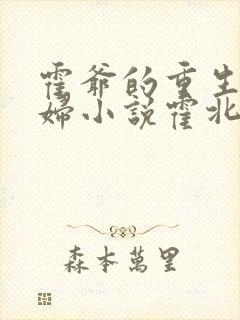 霍爷的重生
妇小说霍北
森本萬里